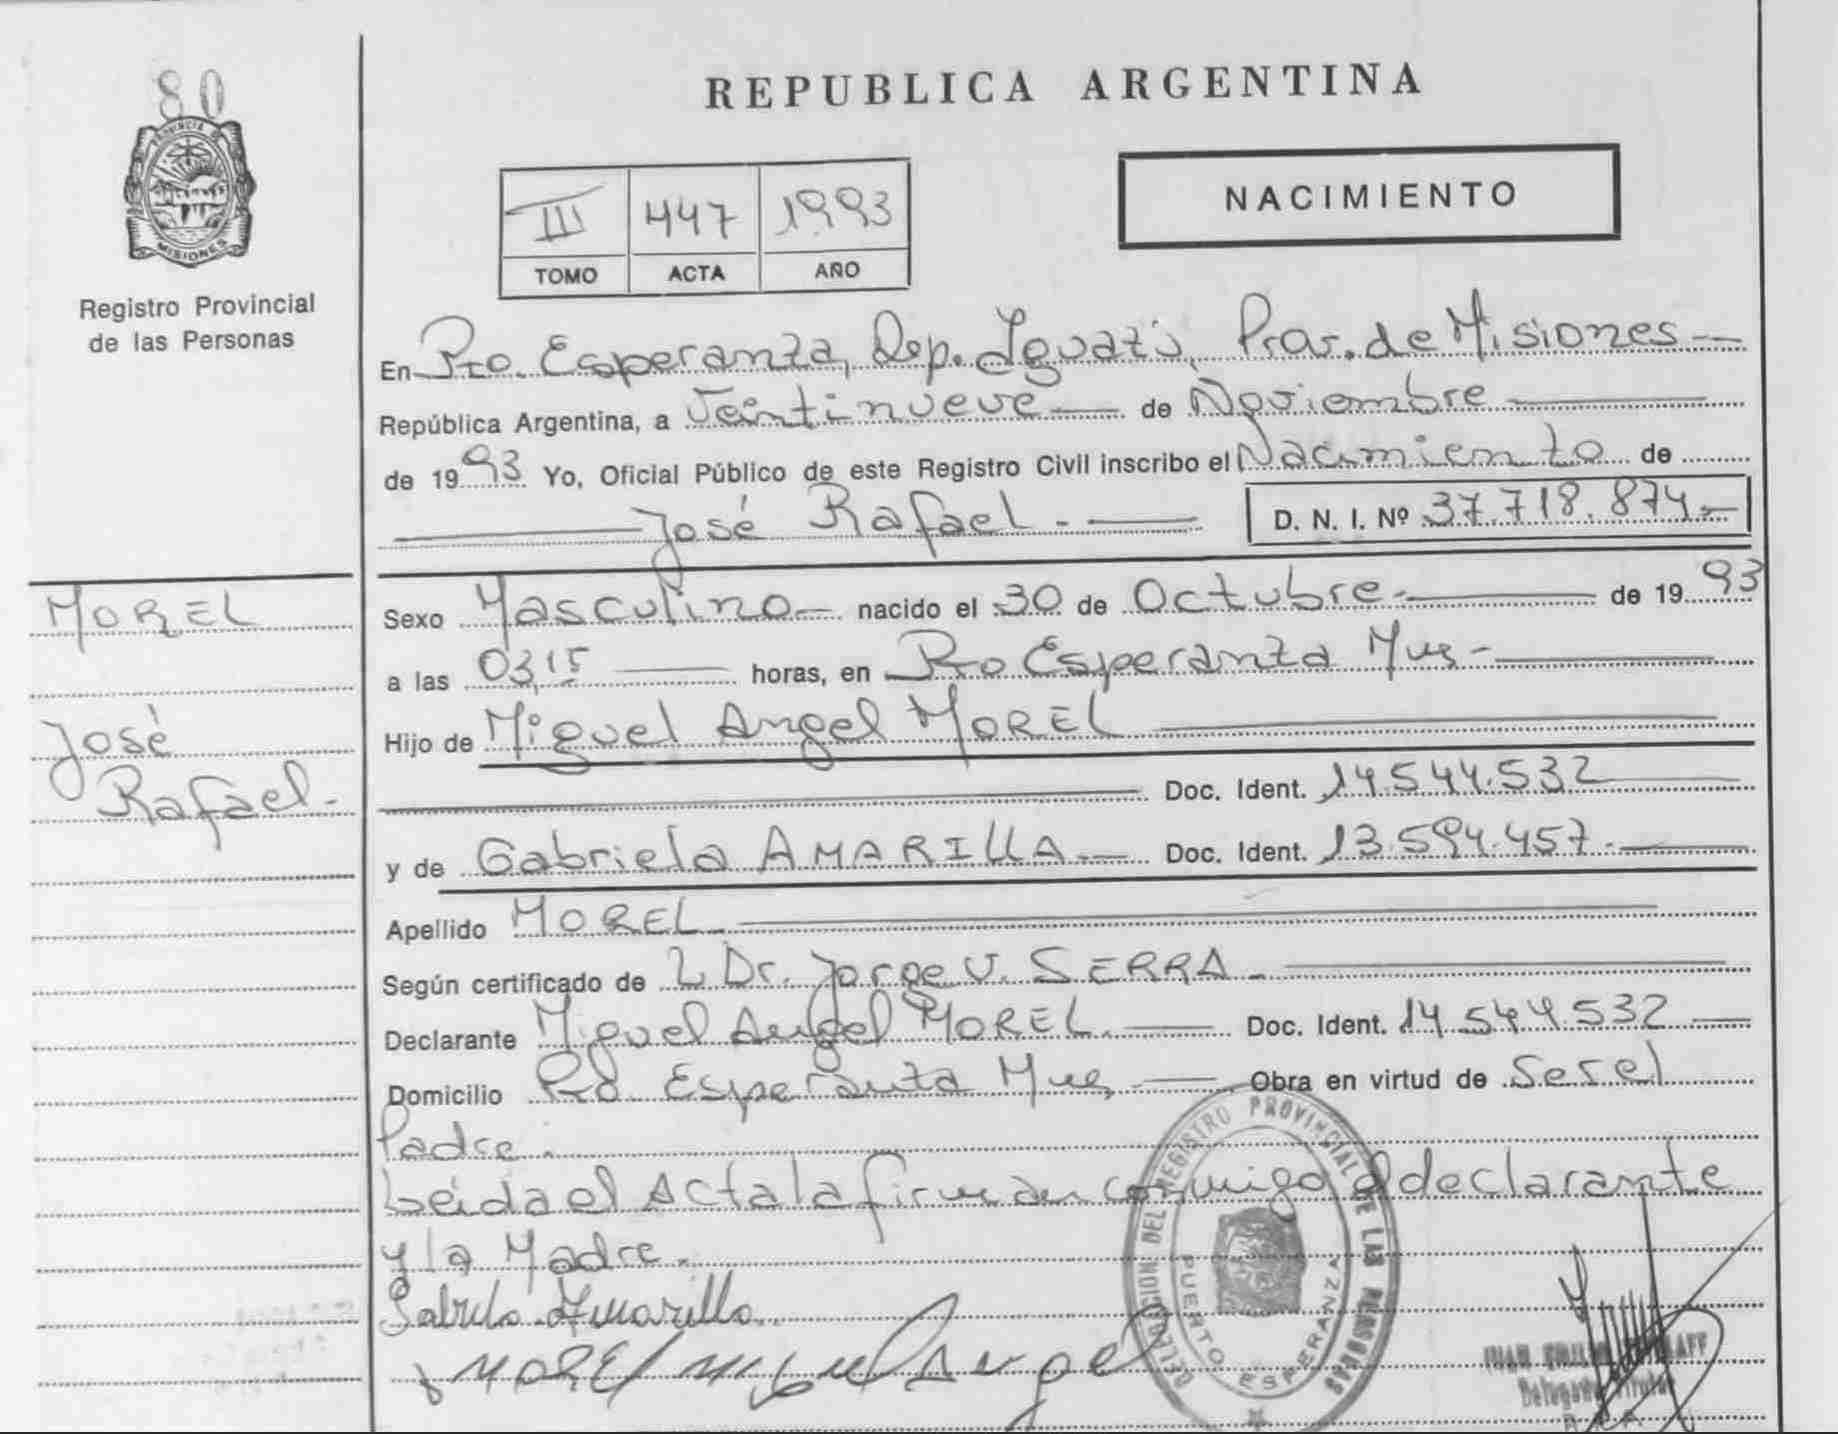 80
PROVINCIA DE
MISIONES
Registro Provincial
de las Personas
REPUBLICA ARGENTINA
III 447 1993
TOMO ACTA AÑO
NACIMIENTO
En Pto. Esperanza, Dep. Iguazú, Prov. de Misiones
República Argentina, a Veintinueve de Noviembre
de 1993 Yo, Oficial Público de este Registro Civil inscribo el Nacimiento de
José Rafael.- D. N. I. Nº 37.718.874.-
MOREL
José
Rafael.-
Sexo Masculino nacido el 30 de Octubre.- de 1993
a las 03,15 horas, en Pto Esperanza Mnes-
Hijo de Miguel Angel MOREL
Doc. Ident. 14.544.532
y de Gabriela AMARILLA.- Doc. Ident. 13.594.457.-
Apellido MOREL.
Según certificado de Dr. Jorge V. SERRA.-
Declarante Miguel Angel MOREL. Doc. Ident. 14.544.532
Domicilio Pto. Esperanza Mnes Obra en virtud de ser el
Padre.
Leída el Acta la firman conmigo el declarante
y la Madre.
Gabriela Amarilla
MOREL Miguel Angel
DELEGACION DEL REGISTRO PROVINCIAL DE LAS PERSONAS
PUERTO ESPERANZA
JUAN EMILIO
Delegado Titular